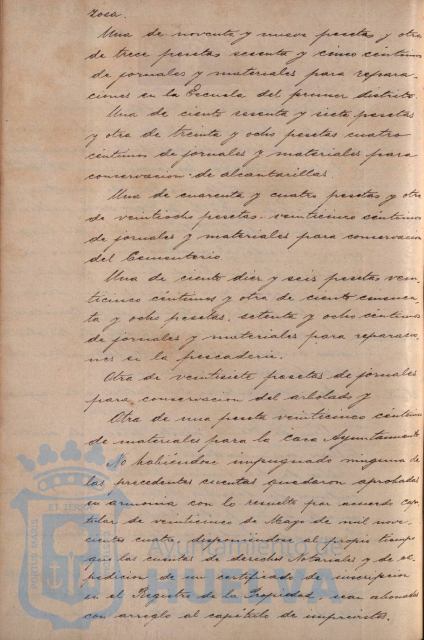 zosa.
Una de noventa y nueve pesetas y otra
de trece pesetas sesenta y cinco céntimos
de jornales y materiales para repara-
ciones en la Escuela del primer distrito.
Una de ciento sesenta y siete pesetas
y otra de treinta y ocho pesetas cuatro
céntimos de jornales y materiales para
conservacion de alcantarillas.
Una de cuarenta y cuatro pesetas y otra
de veintiocho pesetas veinticinco céntimos
de jornales y materiales para conservacion
del Cementerio
Una de ciento diez y seis pesetas vein-
ticinco céntimos y otra de ciento cincuen-
ta y ocho pesetas, setenta y ocho céntimos
de jornales y materiales para reparacio-
nes en la pescaderia.
Otra de veintisiete pesetas de jornales
para conservacion del arbolado y
Otra de una peseta veinticinco céntimos
de materiales para la Casa Ayuntamiento
No habiéndose impugnado ninguna de
las precedentes cuentas quedaron aprobadas
en armonia con lo resuelto por acuerdo capi-
tular de veinticinco de Mayo de mil nove-
cientos cuatro, disponiéndose al propio tiempo
que las cuentas de derechos Notariales y de es-
pedicion de un certificado de inscripcion
en el Registro de la Propiedad, sean abonadas
con arreglo al capítulo de imprevistos.
Ayuntamiento de
HUELVA
PORTUS MARIS ET TERRAE